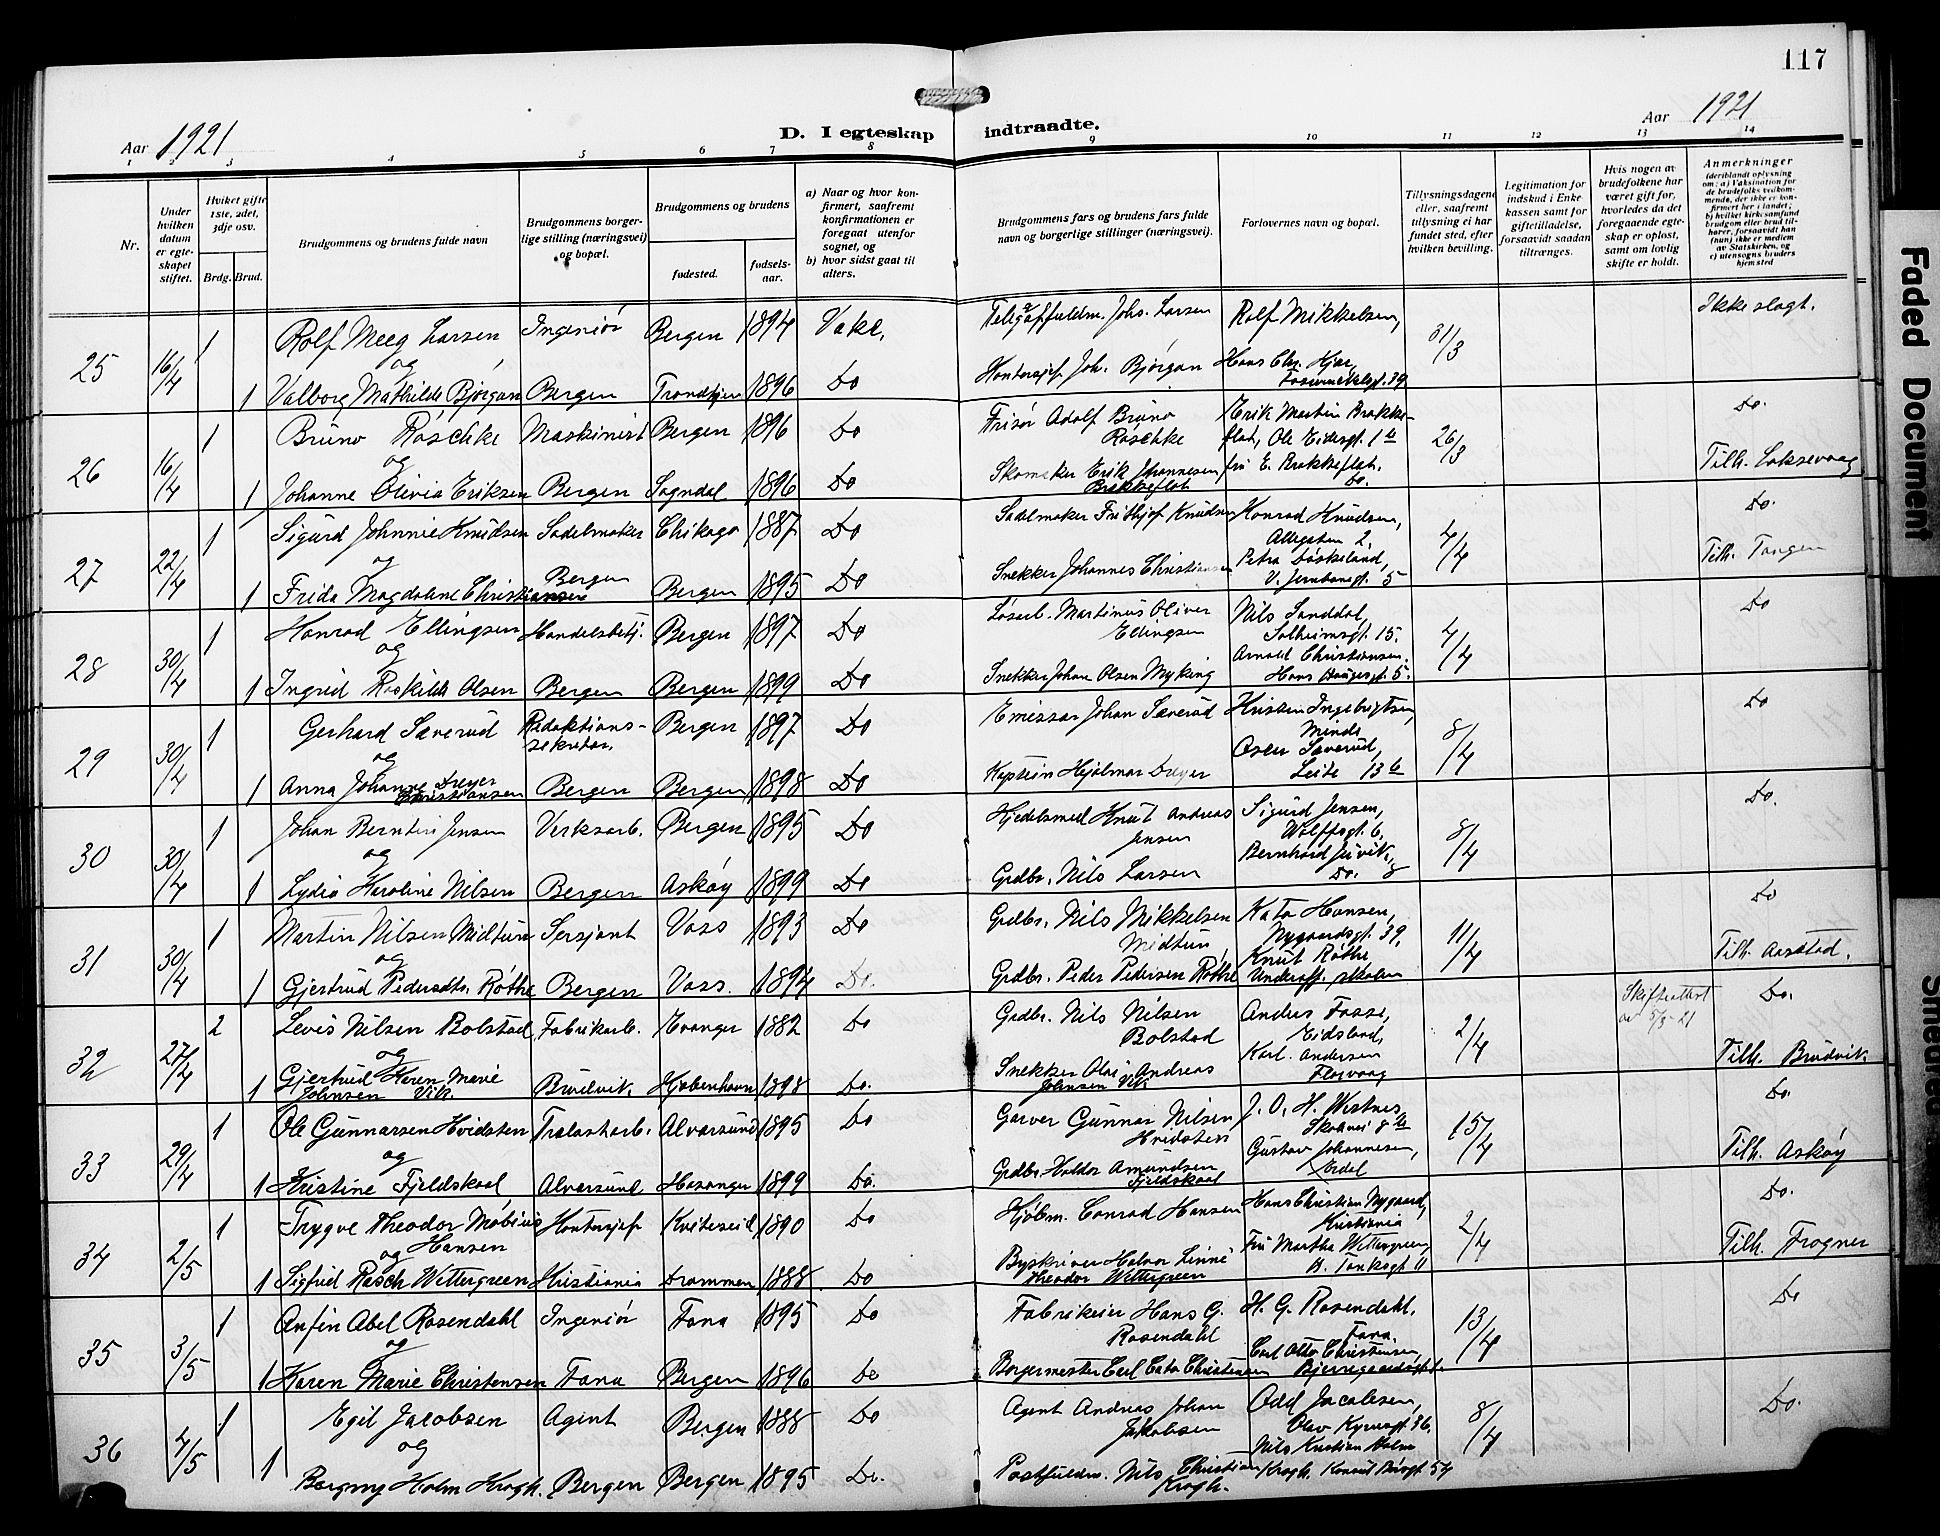 117
Aar 1921
D. I egteskap indtraadte.
Aar 1921
1 2 3 4 5 6 7 8 9 10 11 12 13 14
Nr.
Under hvilken datum er egteskapet stiftet.
Hvilket gifte 1ste, 2det, 3dje osv.
Brdg. Brud.
Brudgommens og brudens fulde navn
Brudgommens borgerlige stilling (næringsvei) og bopæl.
Brudgommens og brudens
fødested.
fødselsaar.
a) Naar og hvor konfirmert, saafremt konfirmationen er foregaat utenfor sognet, og
b) hvor sidst gaat til alters.
Brudgommens fars og brudens fars fulde navn og borgerlige stillinger (næringsvei).
Forlovernes navn og bopæl.
Tillysningsdagene eller, saafremt tillysning ei har fundet sted, efter hvilken bevilling.
Legitimation for indskud i Enkekassen samt for giftetilladelse, forsaavidt saadan tiltrænges.
Hvis nogen av brudefolkene har været gift før, hvorledes da det foregaaende egteskap er opløst, samt om lovlig skifte er holdt.
Anmerkninger (deriblandt oplysning om: a) Vaksination for de brudefolks vedkommende, der ikke er konfirmert her i landet; b) hvilket kirkesamfund brudgom eller brud tilhører, forsaavidt han (hun) ikke er medlem av Statskirken, og c) utensogns bruders hjemsted
25 16/4 1 Rolf Meeg Larsen Ingeniør Bergen 1894 Vake. Joh. Larsen Rolf Mikkelsen, 31/3 Ikke slagt.
og
1 Valborg Mathilde Bjørgan Bergen Trondhjem 1896 Do Kontorsjef Joh. Bjørgan Hans Chr.
26 16/4 1 Bruno Røschke Maskinist Bergen 1896 Do Frisør Adolf Bruno Røschke Erik Martin Brekkeflat, Ole 26/3 Do.
og
1 Johanne Olivia Eriksen Bergen Sogndal 1896 Do Skomaker Erik Johannesen Brekkeflat fru E. Brekkeflat. Do. Tilh. Laksevaag
27 22/4 1 Sigurd Johnnie Knudsen Sadelmaker Chikago 1887 Do Sadelmaker Frithjof Knudsen Konrad Knudsen, Allegaten 2. 4/4 Do.
og
1 Frida Magdalene Christiansen Bergen Bergen 1895 Do Snekker Johannes Christiansen Petra 5 Tilh. Tangen
28 30/4 1 Konrad Ellingsen Handelsbetj. Bergen 1897 Do Løsarb. Martinus Oliver Ellingsen Nils Sanddal, Solheimsgt. 15. 4/4 Do
og
1 Ingrid Roskilde Olsen Bergen Bergen 1899 Do Snekker Johan Olsen Myking Arnold Christiansen, Hans Haugesgt. 5.
29 30/4 1 Gerhard Sæverud Redaktionssekretær. Bergen 1897 Do Emissær Johan Sæverud Kristen Ingebrigtsen, Minde 8/4 Do
og
1 Anna Johanne Dreyer Christiansen Bergen Bergen 1898 Do Kaptein Hjalmar Dreyer Sæverud, Leite 13 b
30 30/4 1 Johan Berntin Jensen Verksarb. Bergen 1895 Do Kjedelsmed Knut Andreas Jensen Sigurd Jensen, Wolffsgt. 6. 8/4 Do.
og
1 Lydia Karoline Nilsen Bergen Askøy 1899 Do Grdbr. Nils Larsen Bernhard Do. 8
31 30/4 1 Martin Nilsen Midtun Sersjant Voss 1893 Do Grdbr. Nils Mikkelsen Midtun Kato Hansen, Nygaardsgt. 39, 11/4 Do
og
1 Gjertrud Pedersdtr. Røthe Bergen Voss. 1894 Do. Grdbr. Peder Pedersen Røthe Knut Røthe Underoff. skolen Tilh. Aarstad.
32 27/4 2 Levis Nilsen Bolstad Fabrikarb. Evanger 1882 Do Grdbr. Nils Nilsen Bolstad Andres Fosse, Eidsland, 2/4 Skifteattest av 5/3-21 Do.
og
1 Gjertrud Karen Marie Johnsen Vik. Bruvik. Kjøbenhavn 1898 Do. Snekker Olai Andreas Johnsen Vik Karl. Andersen Florvaag Tilh. Brudvik
33 29/4 1 Ole Gunnarsen Hvidsten Trælastarb. Alversund 1895 Do Garver Gunnar Nilsen Hvidsten J. O. H. Westnes, 15/4 Do.
og
1 Kristine Fjeldskaal Alversund. Hosanger 1899 Do. Grdbr. Haldor Amundsen Fjeldskaal Gustav Johannesen, Erdal Tilh. Askøy
34 2/5 1 Trygve Theodor Møbius Hansen Kontorsjef Kviteseid 1890 Do Kjøbm. Conrad Hansen Hans Christian Nygaard, Kristiania 2/4 Do.
og
1 Sigfrid Rasch Wettergreen Kristiania Drammen 1888 Do Byskriver Halvor Linné Theodor Wettergreen Fru Martha Wettergreen, 11 Tilh. Frogner
35 3/5 1 Anfin Abel Rosendahl Ingeniør Fana 1895 Do Fabrikeier Hans G. Rosendahl H. G. Rosendahl. Fana. 13/4 Do
og
1 Karen Marie Christensen Fana Bergen 1896 Do Borgermester Carl Cato Christensen Carl Otto Christensen,
36 4/5 1 Egil Jacobsen Agent Bergen 1888 Do Agent Andreas Johan Jakobsen Odd Jacobsen, Olav Kyrresgt. 36. 8/4 Do.
og
1 Borgny Holm Krogh. Bergen Bergen 1895 Do. Postfuldm. Nils Christian Krogh. Nils Kristian Holm Krogh. 54
Faded Document